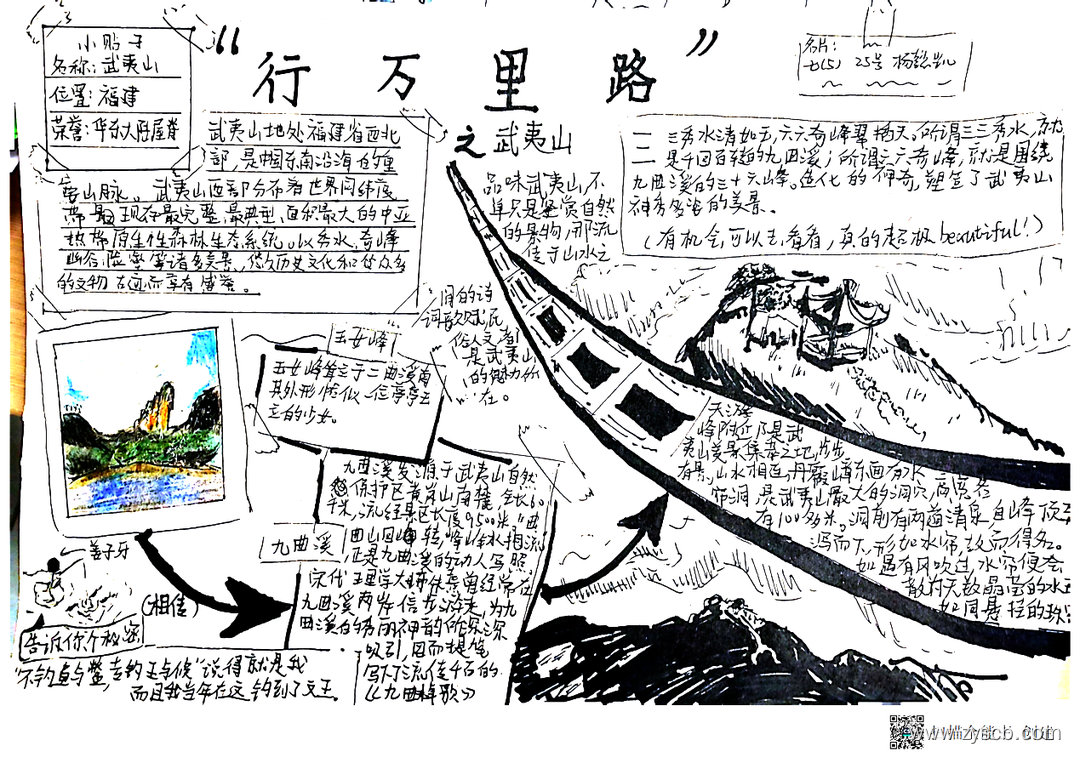 小贴子
名称：武夷山
位置：福建
荣誉：华东大陆屋脊
“行万里路”
之武夷山
名片：
七(5) 25号
武夷山地处福建省西北
部，是中国东南沿海的重
要山脉。武夷山西部分布着世界同纬度
带最现存最完整、最典型、面积最大的中亚
热带原生性森林生态系统。以秀水、奇峰
幽谷、险壑等诸多美景、悠久历史文化和众多
的文物古迹而享有盛誉。
品味武夷山，不
单只是鉴赏自然
的景物，那流
传于山水之
间的诗
词歌赋，民
俗人文，者阝
是武夷山
的魅力所
在。
三三秀水清如玉，六六奇峰翠插天。所谓三三秀水，就
是千回百转的九曲溪；所谓六六奇峰，就是围绕
九曲溪的三十六山峰。造化的神奇，塑造了武夷山
神秀多姿的美景。
（有机会，可以去看看，真的超极beautiful！）
玉女峰
玉女峰耸立于二曲溪南
其外形酷似一位亭亭玉
立的少女。
九曲溪
九曲溪发源于武夷山自然
保护区黄岗山南麓，全长60
千米，流经景区长度9500米，“曲
曲山回转，峰峰水相流
正是九曲溪的动人写照
宋代理学大师朱熹曾经常在
九曲溪两岸信步游走，为九
曲溪的秀丽神韵所深深
吸引，因而提笔
写下了流传千百的
《九曲棹歌》
天游
峰附近乃是武
夷山美景集萃之地，步步
有景，山水相连，丹崖峰东面有水
帘洞，是武夷山最大的洞穴，高宽各
有100多米。洞前有两道清泉，自峰顶
泻而下，形如水帘，故而得名。
如遇有风吹过，水帘便会
散为天散晶莹的水
如同悬挂的珠
姜子牙
（相信）
告诉你个秘密
“不钓鱼与鳖，专钓王与候”说得就是我
而且我当年在这钓到了文王。
www.zyscb.com